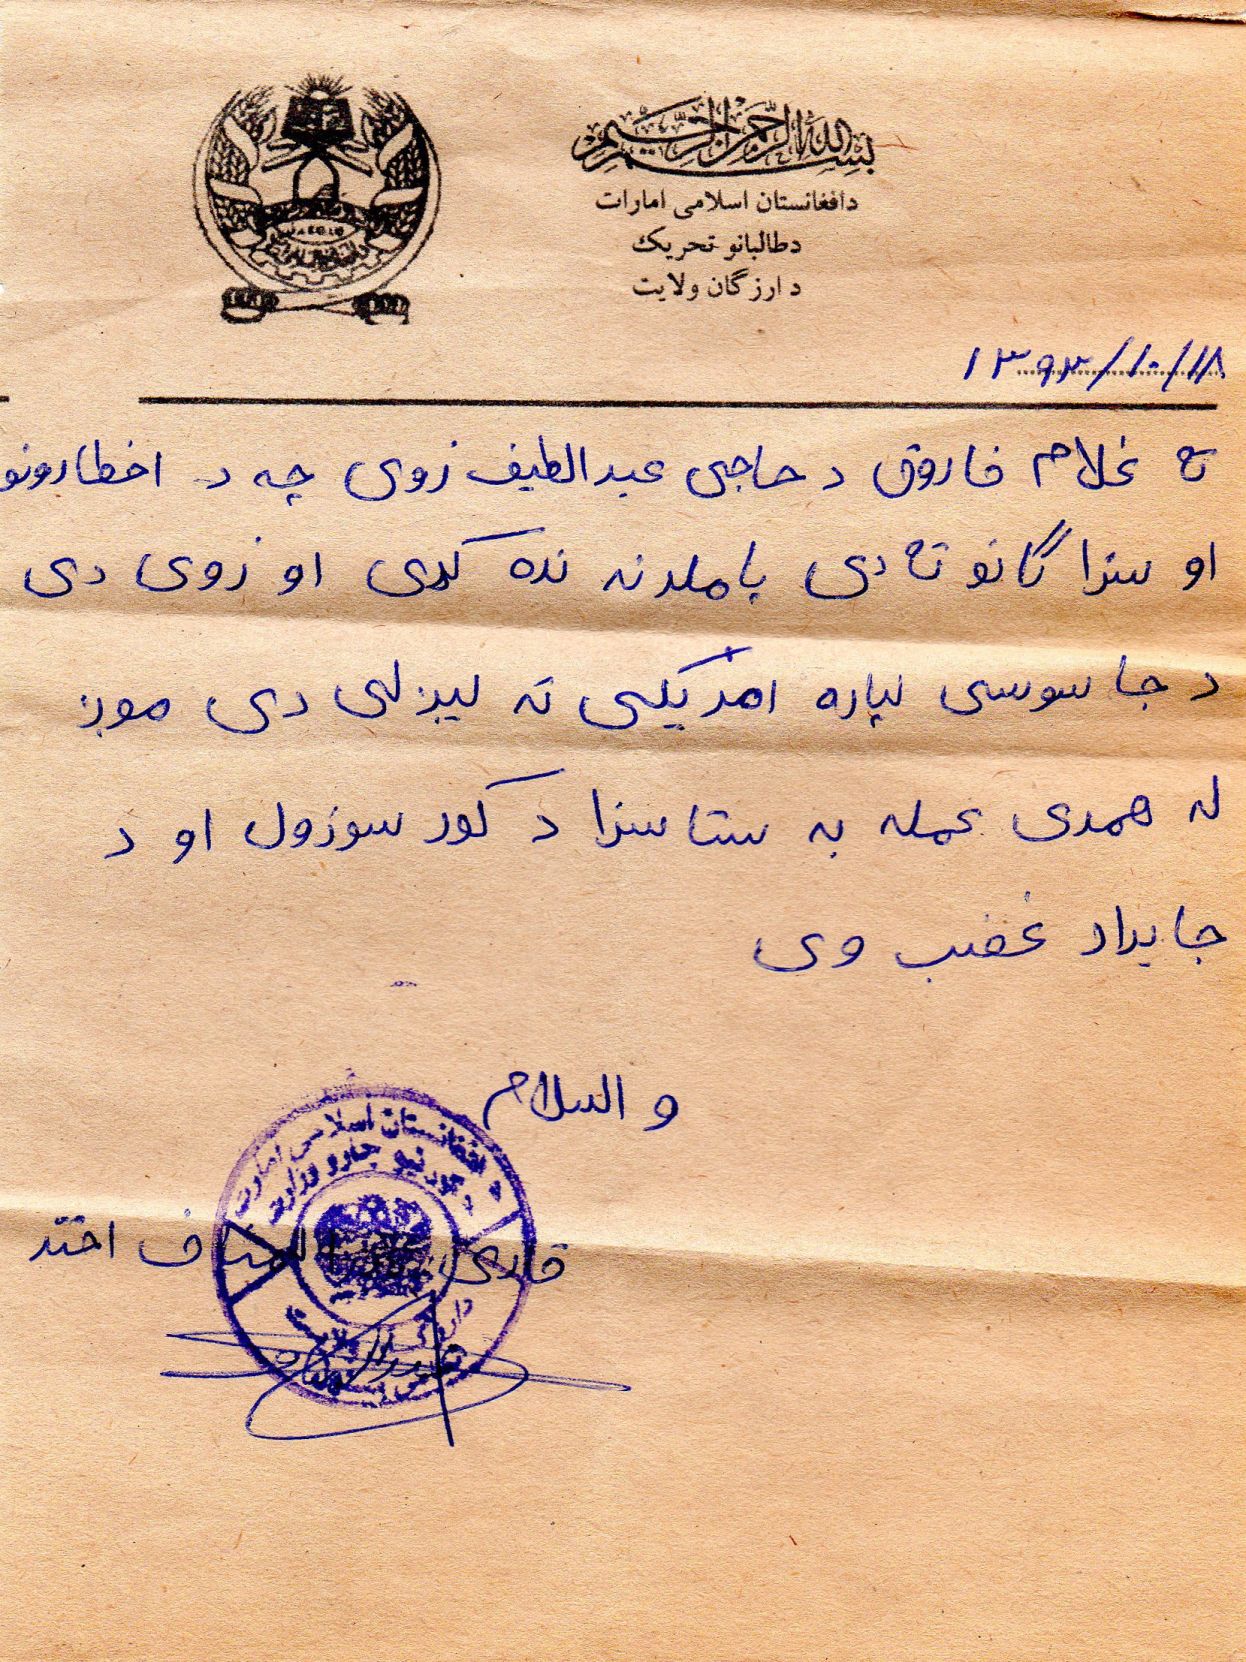 بسم الله الرحمن الرحیم
دافغانستان اسلامی امارات
دطالبانو تحریک
د ارزگان ولایت
۱۳۹۳/۱۰/۱۸
ته غلام فاروق د حاجی عبدالطیف زوی چه د اخطارونو
او سزاگانو ته دی پاملرنه نده کړی او زوی دی
د جاسوسی لپاره امریکی ته لیږلی دی موږ
له همدی عمله به ستا سزا د کور سوزول او د
جایداد غضب وی
و السلام
د افغانستان اسلامی امارت
د کورنیو چارو وزارت
قاری